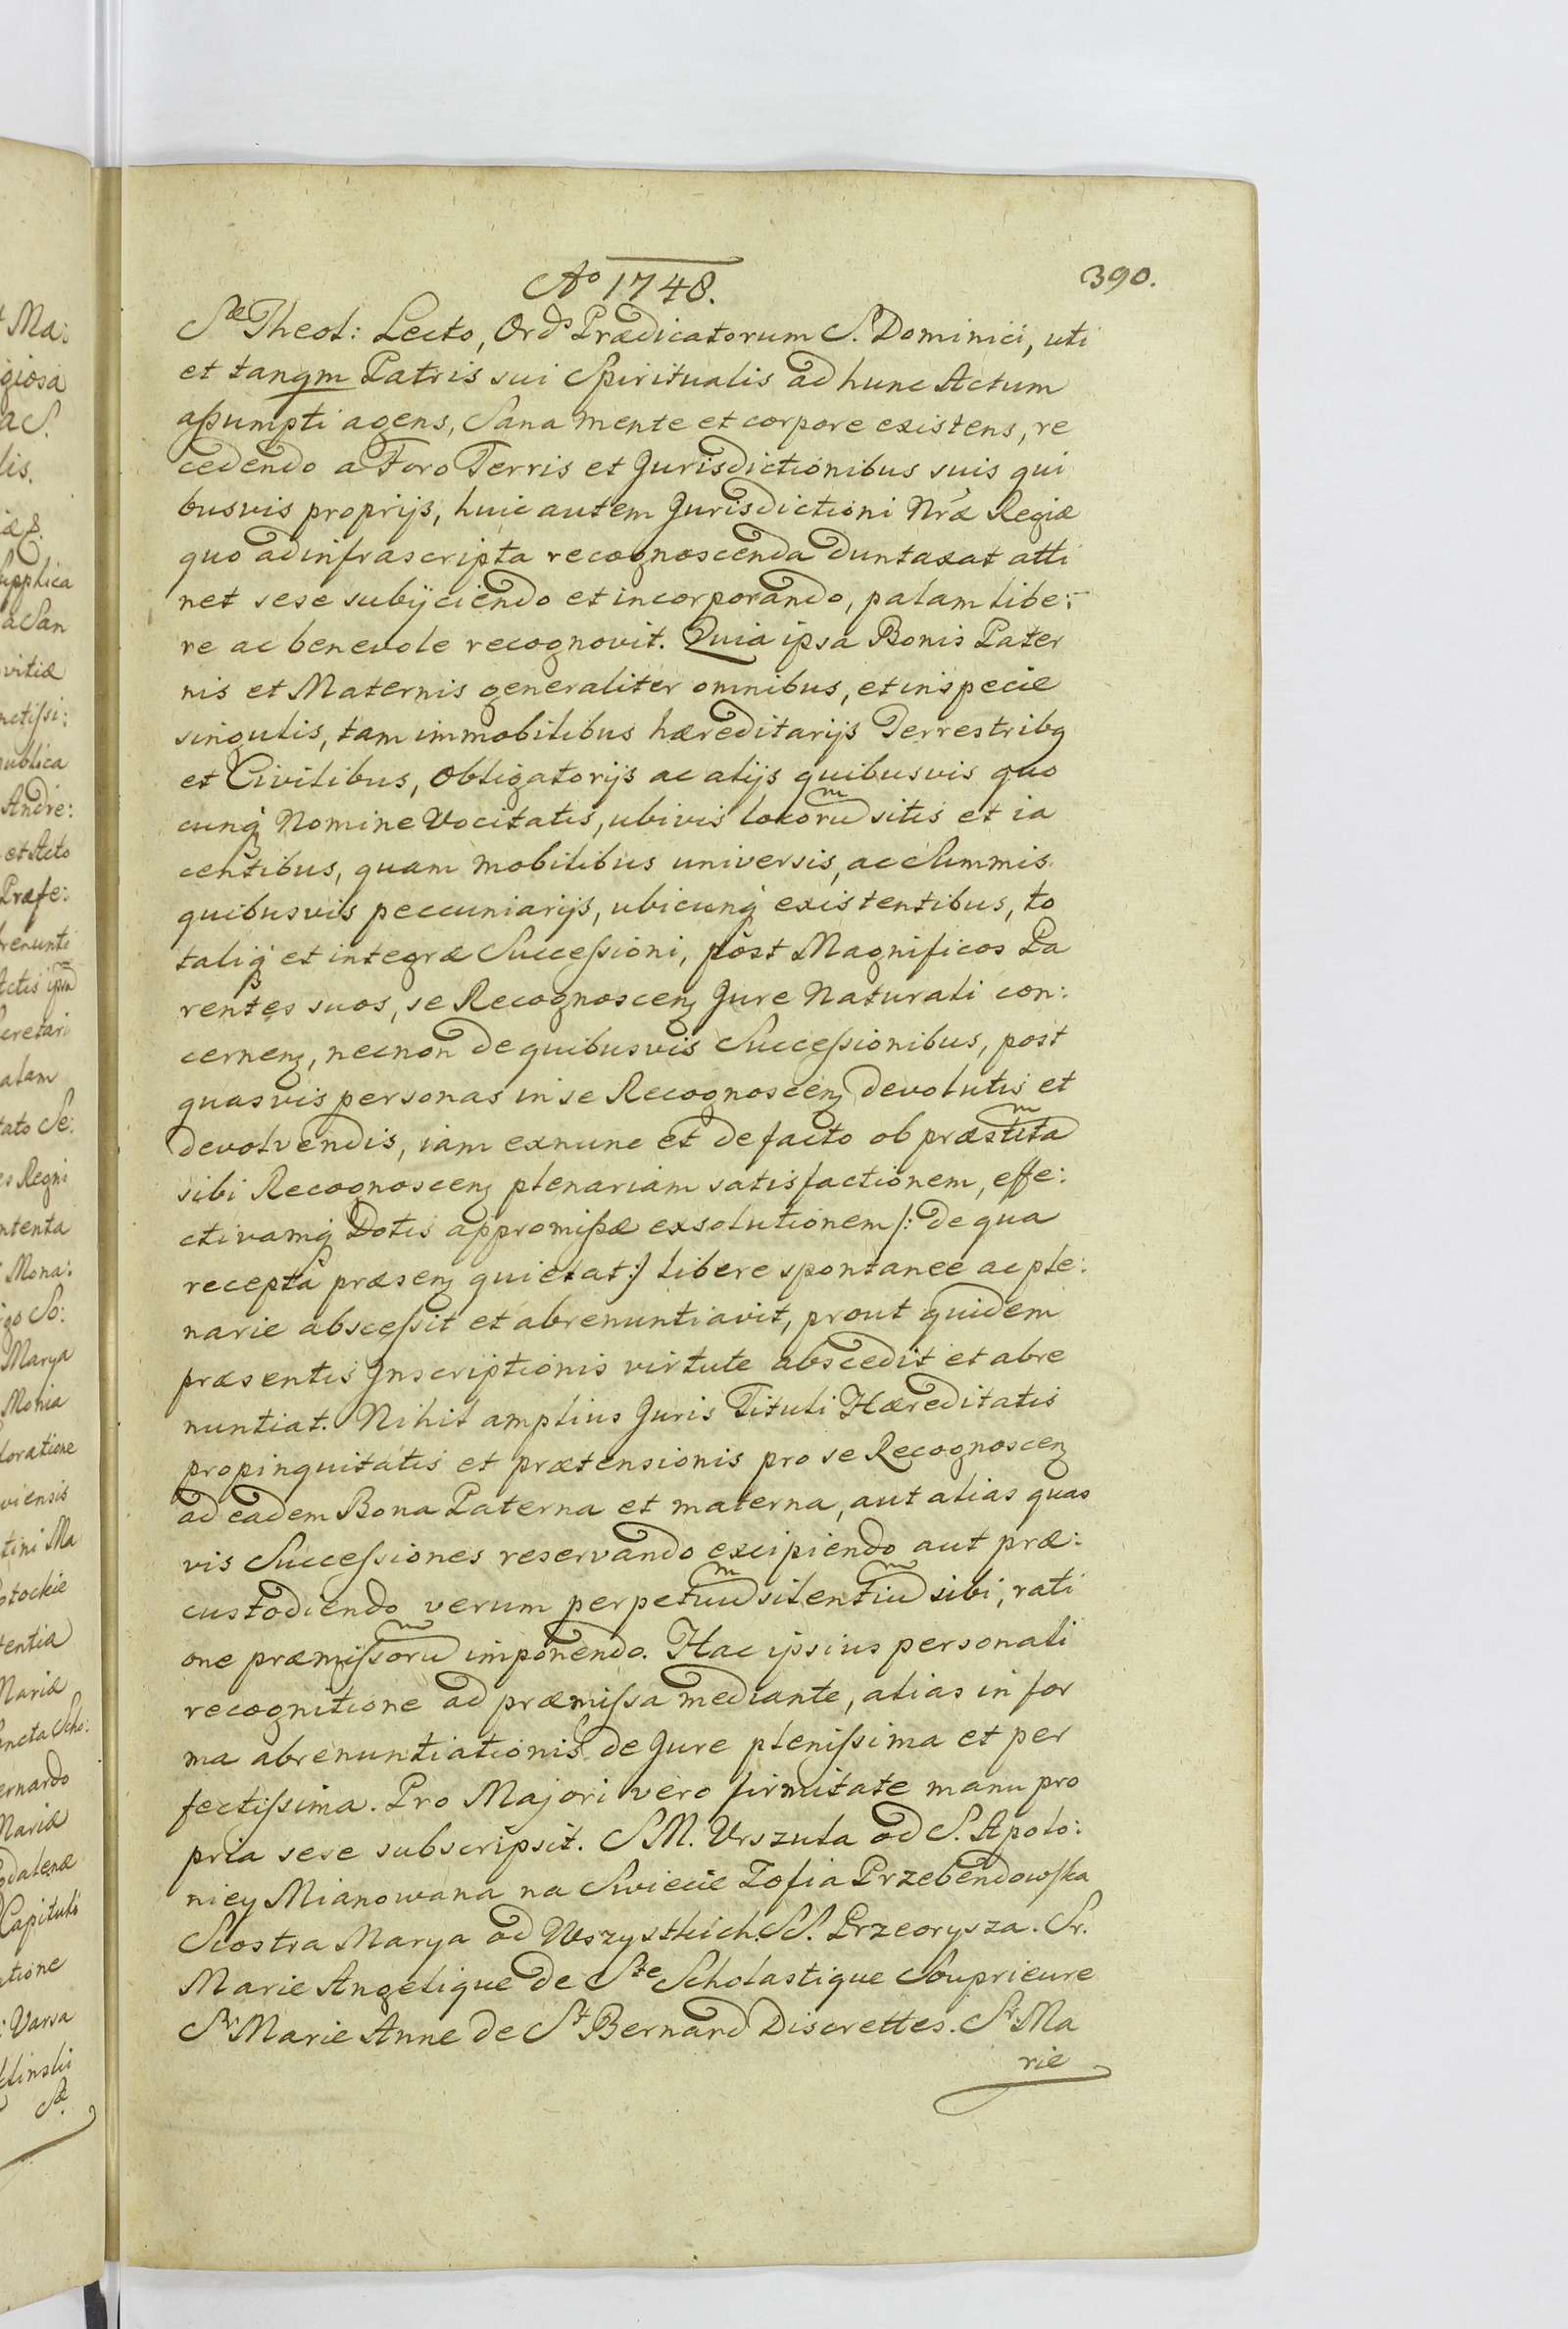 t Ma:
giosa
a S.
lis.
upplica
a San
vitiæ
nctissi:
publica
Andre:
et Acto
Præfe:
renunti
Actis
ecretari
alam
tato Se:
es Regni
ntenta
Mona:
igo So:
Marya
Monia
loratione
viensis
tini Ma
otockie
tentia
Mariæ
ancta Scho:
ernardo
Mariæ
gdalenæ
Capituli
atione
: Varsa
klinski
Sæ
390.
Aº 1748.
Sæ Theol: Lecto, Ords Prædicatorum S. Dominici, uti
et tanqm Patris sui Spiritualis ad hunc Actum
assumpti agens, Sana mente et corpore existens, re
cedendo a Foro Terris et Jurisdictionibus suis qui
busvis proprijs, huic autem Jurisdictioni Nræ Regiæ
quo ad infrascripta recognoscenda duntaxat atti
net sese subijciendo et incorporando, palam libe:
re ac benevole recognovit. Quia ipsa Bonis Pater
nis et Maternis generaliter omnibus, et in specie
singulis, tam immobilibus hæreditarijs Terrestribq
et Civilibus, Obligatorijs ac alijs quibusvis quo
cunq Nomine Vocitatis, ubivis locorum sitis et ia
centibus, quam mobilibus universis, ac Summis
quibusvis peccuniarijs, ubicunq existentibus, to
taliq et integræ Successioni, post Magnificos Pa
rentes suos, se Recognoscenz Jure Naturali con:
cernenz, necnon de quibusvis Successionibus, post
quasvis personas in se Recognoscenz devolutis et
devolvendis, iam exnunc et de facto ob præstitam
sibi Recognoscenz plenariam satisfactionem, effe:
ctivamq Dotis appromissæ exsolutionem /: de qua
recepta præsenz quietat :/ libere spontanee ac ple:
narie abscessit et abrenuntiavit, prout quidem
præsentis Inscriptionis virtute abscedit et abre
nuntiat. Nihil amplius Juris Tituli Hæreditatis
propinquitatis et prætensionis pro se Recognoscenz
ad eadem Bona Paterna et materna, aut alias quas
vis Successiones reservando excipiendo aut præ:
custodiendo verum perpetuum silentium sibi, rati
one præmissorum imponendo. Hac ipsius personali
recognitione ad præmissa mediante, alias in for
ma abrenuntiationis de Jure plenissima et per
fectissima. Pro Majori vero firmitate manu pro
pria sese subscripsit. S M. Urszula od S. Apolo:
niey Mianowana na Swiecie Zofia Przebendowska
Siostra Marya od Wszystkich. SS. Przeorysza. Sr.
Marie Angelique de Ste Scholastique Souprieure
Sr Marie Anne de St Bernard Discrettes. Sr Ma
rie